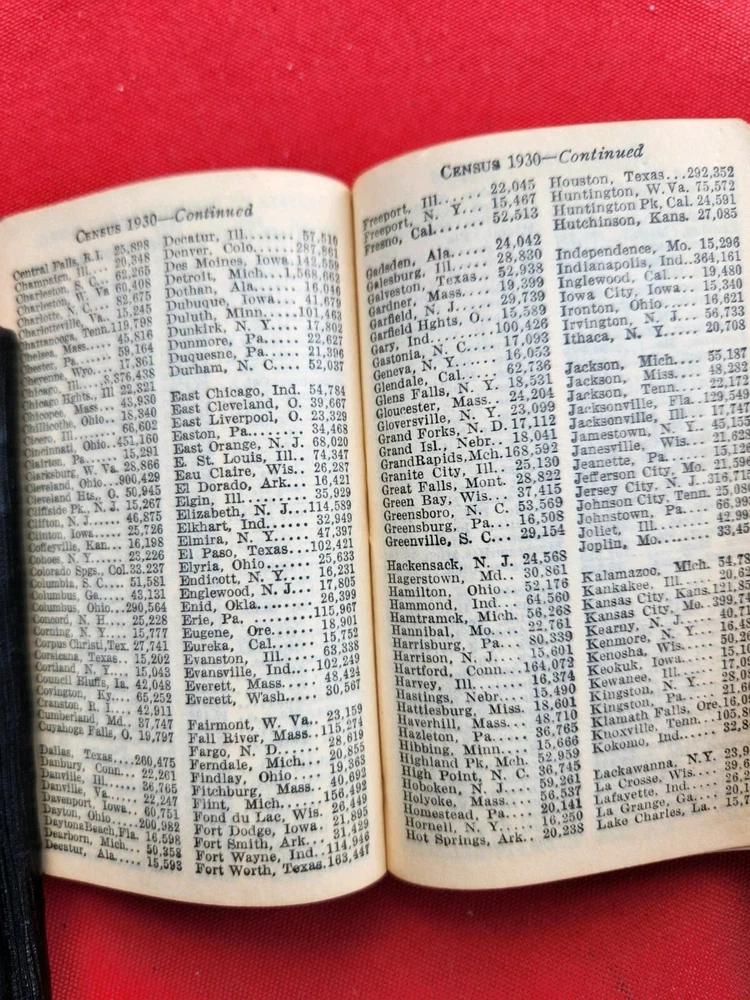 CENSUS 1930—Continued
Central Falls, R.I. 25,898
Champaign, Ill.... 20,348
Charleston, S. C... 62,265
Charleston, W. Va 60,408
Charlotte, N. C.... 82,675
Charlottesville, Va... 15,245
Chattanooga, Tenn.119,798
Chelsea, Mass.... 45,816
Chester, Pa...... 59,164
Cheyenne, Wyo... 17,361
Chicago, Ill....3,376,438
Chicago Hghts., Ill 22,321
Chicopee, Mass... 43,930
Chillicothe, Ohio.. 18,340
Cicero, Ill........ 66,602
Cincinnati, Ohio..451,160
Clairton, Pa..... 15,291
Clarksburg, W. Va. 28,866
Cleveland, Ohio...900,429
Cleveland Hts., O. 50,945
Cliffside Pk., N. J. 15,267
Clifton, N. J...... 46,875
Clinton, Iowa..... 25,726
Coffeyville, Kan... 16,198
Cohoes, N. Y..... 23,226
Colorado Spgs., Col.33,237
Columbia, S. C.... 51,581
Columbus, Ga..... 43,131
Columbus, Ohio..290,564
Concord, N. H.... 25,228
Corning, N. Y.... 15,777
Corpus Christi,Tex. 27,741
Corsicana, Texas.. 15,202
Cortland, N. Y.... 15,043
Council Bluffs, Ia. 42,048
Covington, Ky.... 65,252
Cranston, R. I.... 42,911
Cumberland, Md.. 37,747
Cuyahoga Falls, O. 19,797
Dallas, Texas....260,475
Danbury, Conn... 22,261
Danville, Ill...... 36,765
Danville, Va..... 22,247
Davenport, Iowa.. 60,751
Dayton, Ohio....200,982
DaytonaBeach,Fla. 16,598
Dearborn, Mich... 50,358
Decatur, Ala..... 15,593
Decatur, Ill....... 57,510
Denver, Colo.....287,861
Des Moines, Iowa.142,559
Detroit, Mich...1,568,662
Dothan, Ala..... 16,046
Dubuque, Iowa... 41,679
Duluth, Minn....101,463
Dunkirk, N. Y.... 17,802
Dunmore, Pa..... 22,627
Duquesne, Pa.... 21,396
Durham, N. C.... 52,037
East Chicago, Ind. 54,784
East Cleveland, O. 39,667
East Liverpool, O. 23,329
Easton, Pa....... 34,468
East Orange, N. J. 68,020
E. St. Louis, Ill.. 74,347
Eau Claire, Wis... 26,287
El Dorado, Ark... 16,421
Elgin, Ill........ 35,929
Elizabeth, N. J...114,589
Elkhart, Ind..... 32,949
Elmira, N. Y..... 47,397
El Paso, Texas...102,421
Elyria, Ohio..... 25,633
Endicott, N. Y.... 16,231
Englewood, N. J... 17,805
Enid, Okla....... 26,399
Erie, Pa. .......115,967
Eugene, Ore...... 18,901
Eureka, Cal...... 15,752
Evanston, Ill..... 63,338
Evansville, Ind...102,249
Everett, Mass..... 48,424
Everett, Wash.... 30,567
Fairmont, W. Va.. 23,159
Fall River, Mass..115,274
Fargo, N. D...... 28,619
Ferndale, Mich... 20,855
Findlay, Ohio .... 19,363
Fitchburg, Mass... 40,692
Flint, Mich......156,492
Fond du Lac, Wis. 26,449
Fort Dodge, Iowa. 21,895
Fort Smith, Ark... 31,429
Fort Wayne, Ind..114,946
Fort Worth, Texas.163,447
CENSUS 1930—Continued
Freeport, Ill..... 22,045
Freeport, N. Y... 15,467
Fresno, Cal...... 52,513
Gadsden, Ala..... 24,042
Galesburg, Ill.... 28,830
Galveston, Texas.. 52,938
Gardner, Mass.... 19,399
Garfield, N. J.... 29,739
Garfield Hghts., O. 15,589
Gary, Ind.......100,426
Gastonia, N. C.... 17,093
Geneva, N. Y..... 16,053
Glendale, Cal..... 62,736
Glens Falls, N. Y. 18,531
Gloucester, Mass.. 24,204
Gloversville, N. Y. 23,099
Grand Forks, N. D. 17,112
Grand Isl., Nebr.. 18,041
GrandRapids,Mch.168,592
Granite City, Ill.. 25,130
Great Falls, Mont. 28,822
Green Bay, Wis... 37,415
Greensboro, N. C. 53,569
Greensburg, Pa... 16,508
Greenville, S. C... 29,154
Hackensack, N. J. 24,568
Hagerstown, Md.. 30,861
Hamilton, Ohio... 52,176
Hammond, Ind... 64,560
Hamtramck, Mich. 56,268
Hannibal, Mo.... 22,761
Harrisburg, Pa... 80,339
Harrison, N. J... 15,601
Hartford, Conn..164,072
Harvey, Ill...... 16,374
Hastings, Nebr... 15,490
Hattiesburg, Miss. 18,601
Haverhill, Mass... 48,710
Hazleton, Pa..... 36,765
Hibbing, Minn... 15,666
Highland Pk., Mch. 52,959
High Point, N. C. 36,745
Hoboken, N. J.... 59,261
Holyoke, Mass.... 56,537
Homestead, Pa... 20,141
Hornell, N. Y.... 16,250
Hot Springs, Ark.. 20,238
Houston, Texas...292,352
Huntington, W.Va. 75,572
Huntington Pk., Cal. 24,591
Hutchinson, Kans. 27,085
Independence, Mo. 15,296
Indianapolis, Ind.364,161
Inglewood, Cal.... 19,480
Iowa City, Iowa.. 15,340
Ironton, Ohio.... 16,621
Irvington, N. J... 56,733
Ithaca, N. Y..... 20,708
Jackson, Mich.... 55,187
Jackson, Miss.... 48,282
Jackson, Tenn.... 22,172
Jacksonville, Fla..129,549
Jacksonville, Ill...
Jamestown, N. Y.. 45,155
Janesville, Wis...
Jeannette, Pa....
Jefferson City, Mo.
Jersey City, N. J.
Johnson City, Tenn.
Johnstown, Pa....
Joliet, Ill........
Joplin, Mo.......
Kalamazoo, Mich.
Kankakee, Ill.....
Kansas City, Kans.
Kansas City, Mo.
Kearny, N. J.....
Kenmore, N. Y...
Kenosha, Wis....
Keokuk, Iowa....
Kewanee, Ill.....
Kingston, N. Y...
Kingston, Pa.....
Klamath Falls, Ore.
Knoxville, Tenn...
Kokomo, Ind....
Lackawanna, N.Y.
La Crosse, Wis...
Lafayette, Ind....
La Grange, Ga...
Lake Charles, La..